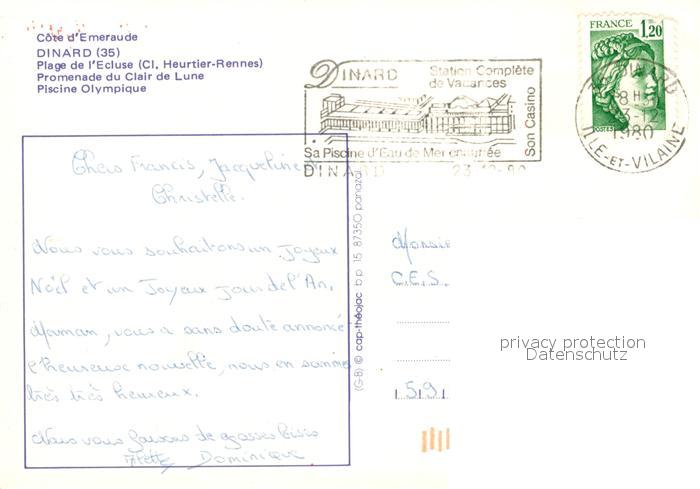 Côte d'Emeraude
DINARD (35)
Plage de l'Ecluse (Cl. Heurtier-Rennes)
Promenade du Clair de Lune
Piscine Olympique
DINARD Station Complète
de Vacances
Son Casino
Sa Piscine d'Eau de Mer
DINARD 23-12-80
FRANCE 1,20
DINARD
8H
1980
ILLE-ET-VILAINE
Chers Francis, Jacqueline
Christelle.
Nous vous souhaitons un Joyeux
Noël et un Joyeux Jour de l'An,
Maman, vous a sans doute annoncé
l'heureuse nouvelle, nous en sommes
très très heureux.
Nous vous faisons de grosses bises
Dominique
(G-B) © cap-théojac b p 15 87350 panazol
Monsie
C.E.S.
59
privacy protection
Datenschutz